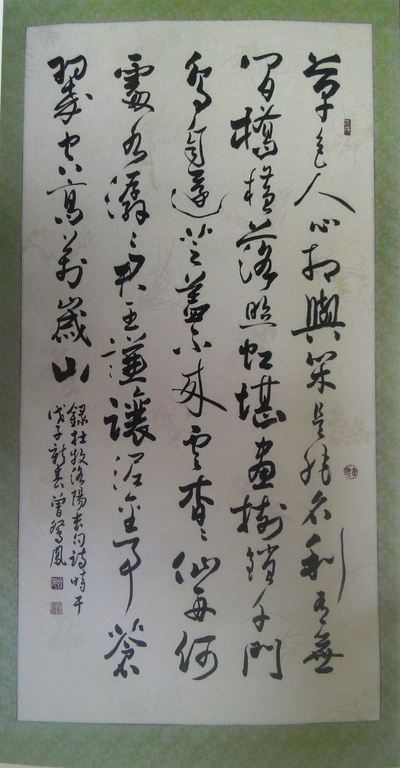 草色人心相與閑是非名利有無
間橋橫落照虹堪畫樹鎖千門
鳥自還芝蓋不來雲杳々仙舟何
處水潺々君王謙讓泥金事蒼
翠空高萬歲山
錄杜牧洛陽長句詩時于
戊子新春曾鳳